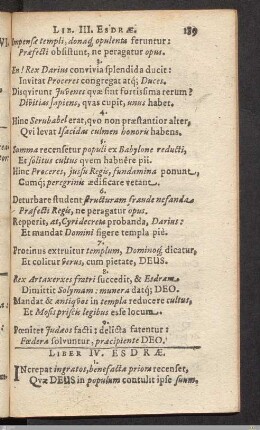 LIB. III. ESDRÆ. 189
Impensæ templi, donaq́; opulenta feruntur:
Præfecti obsistunt, ne peragatur opus.
3.
En! Rex Darius convivia splendida ducit:
Invitat Proceres congregat atq́; Duces.
Disqvirunt Juvenes qvæ sint fortissima rerum?
Divitias sapiens, qvas cupit, unus habet.
4.
Hinc Serubabel erat, qvo non præstantior alter,
Qvi levat Isacidas culmen honoris habens.
5.
Summa recensetur populi ex Babylone reducti,
Et solitus cultus qvem habuêre pii.
Hinc Proceres, jussu Regis, fundamina ponunt,
Cumq́; peregrinis ædificare vetant.
6.
Deturbare student structuram fraude nefanda
Præfecti Regis, ne peragatur opus.
Repperit, at, Cyri decreta probanda, Darius:
Et mandat Domini figere templa piè.
7.
Protinus extruitur templum, Dominoq́; dicatur,
Et colitur verus, cum pietate, DEUS.
8.
Rex Artaxerxes fratri succedit, & Esdram
Dimittit Solymam: munera datq́; DEO.
Mandat & antiqvos in templa reducere cultus,
Et Mosis priscis legibus esse locum.
9.
Pœnitet Judæos facti: delicta fatentur:
Fœdera solvuntur, præcipiente DEO.
LIBER IV. ESDRÆ.
1.
INcrepat ingratos, benefacta priora recenset,
Qvæ DEUS in populum contulit ipse suum,